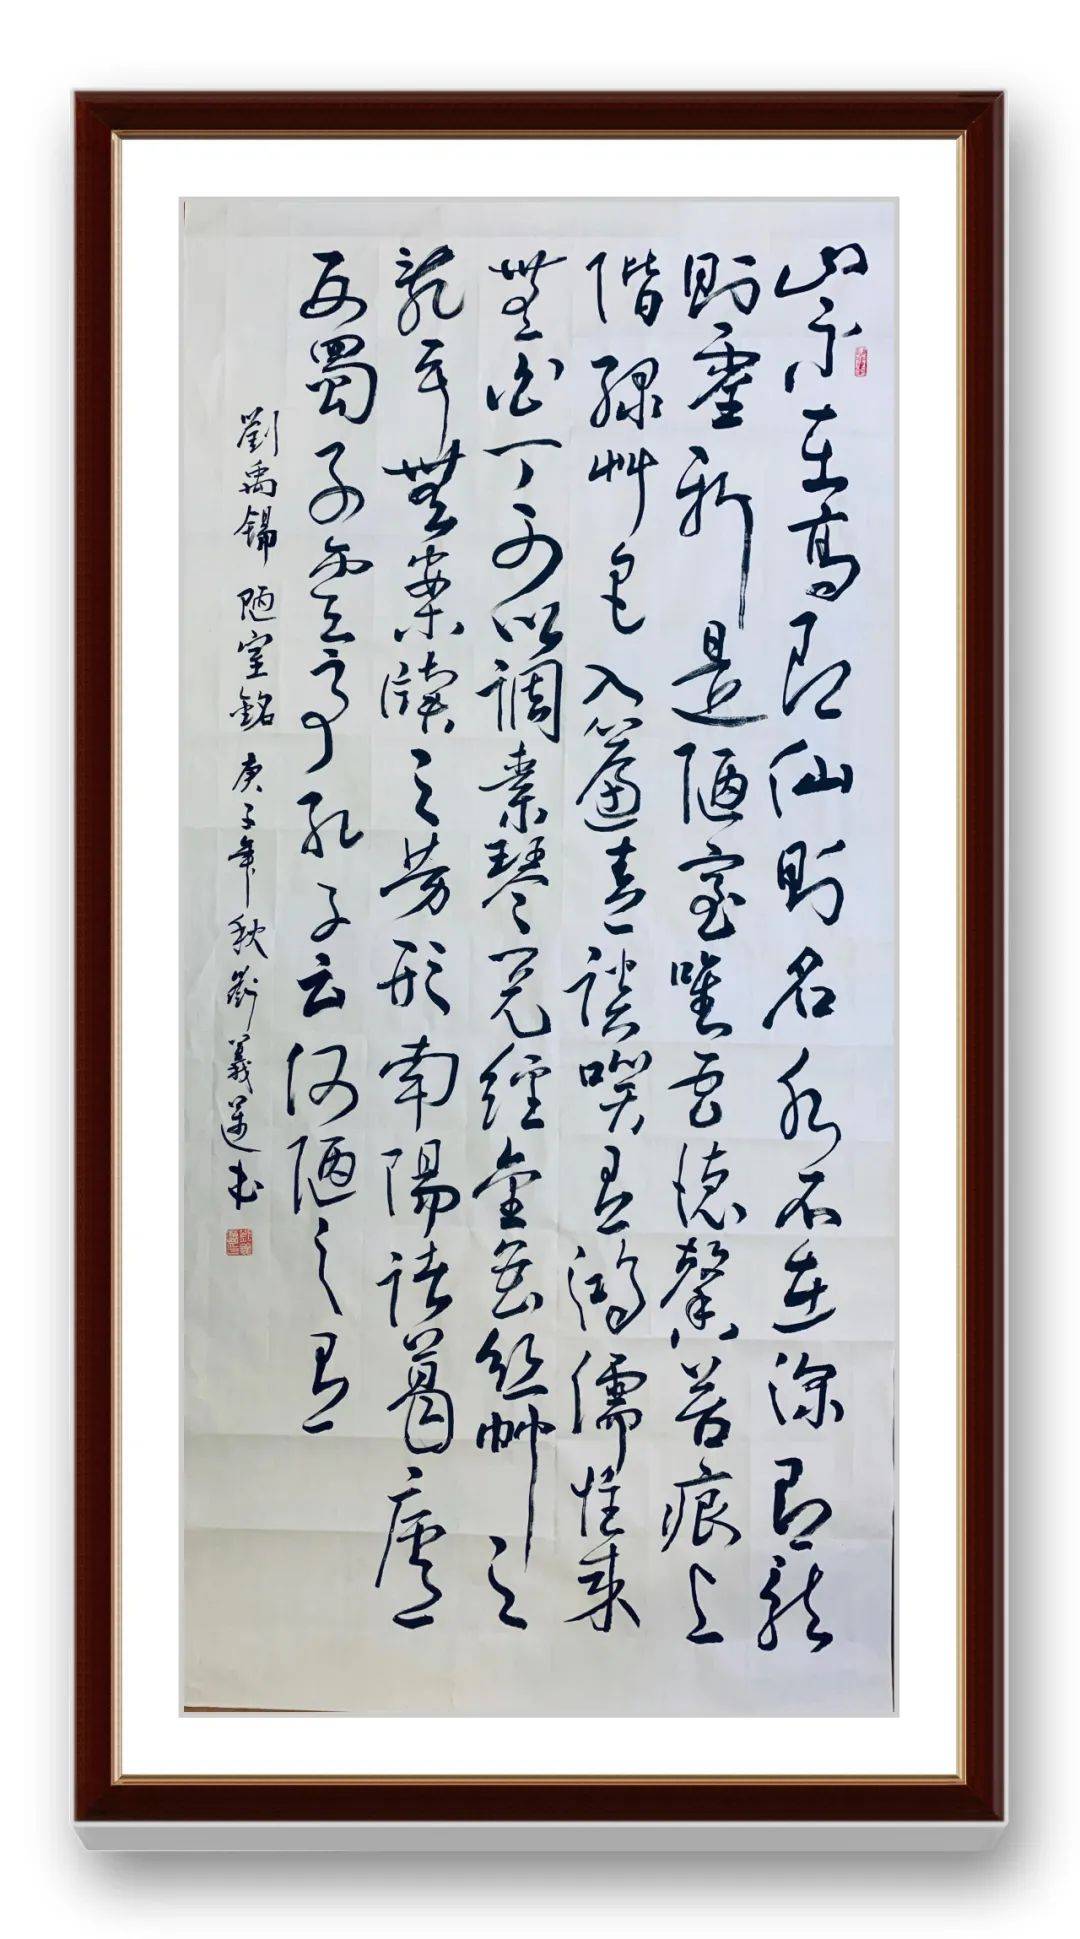 山不在高有仙則名水不在深有龍
則靈斯是陋室唯吾德馨苔痕上
階綠艸色入簾青談笑有鴻儒往來
無白丁可以調素琴閱經金無絲竹之
亂耳無案牘之勞形南陽諸葛廬
西蜀子雲亭孔子云何陋之有
劉禹錫 陋室銘 庚子年秋 劉義书